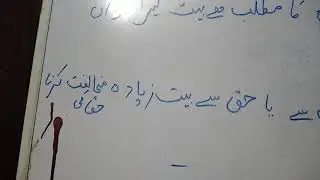 کا مطلب ھے بہت
سے یا حق سے بہت زیادہ مخالفت کرنا
حق کی